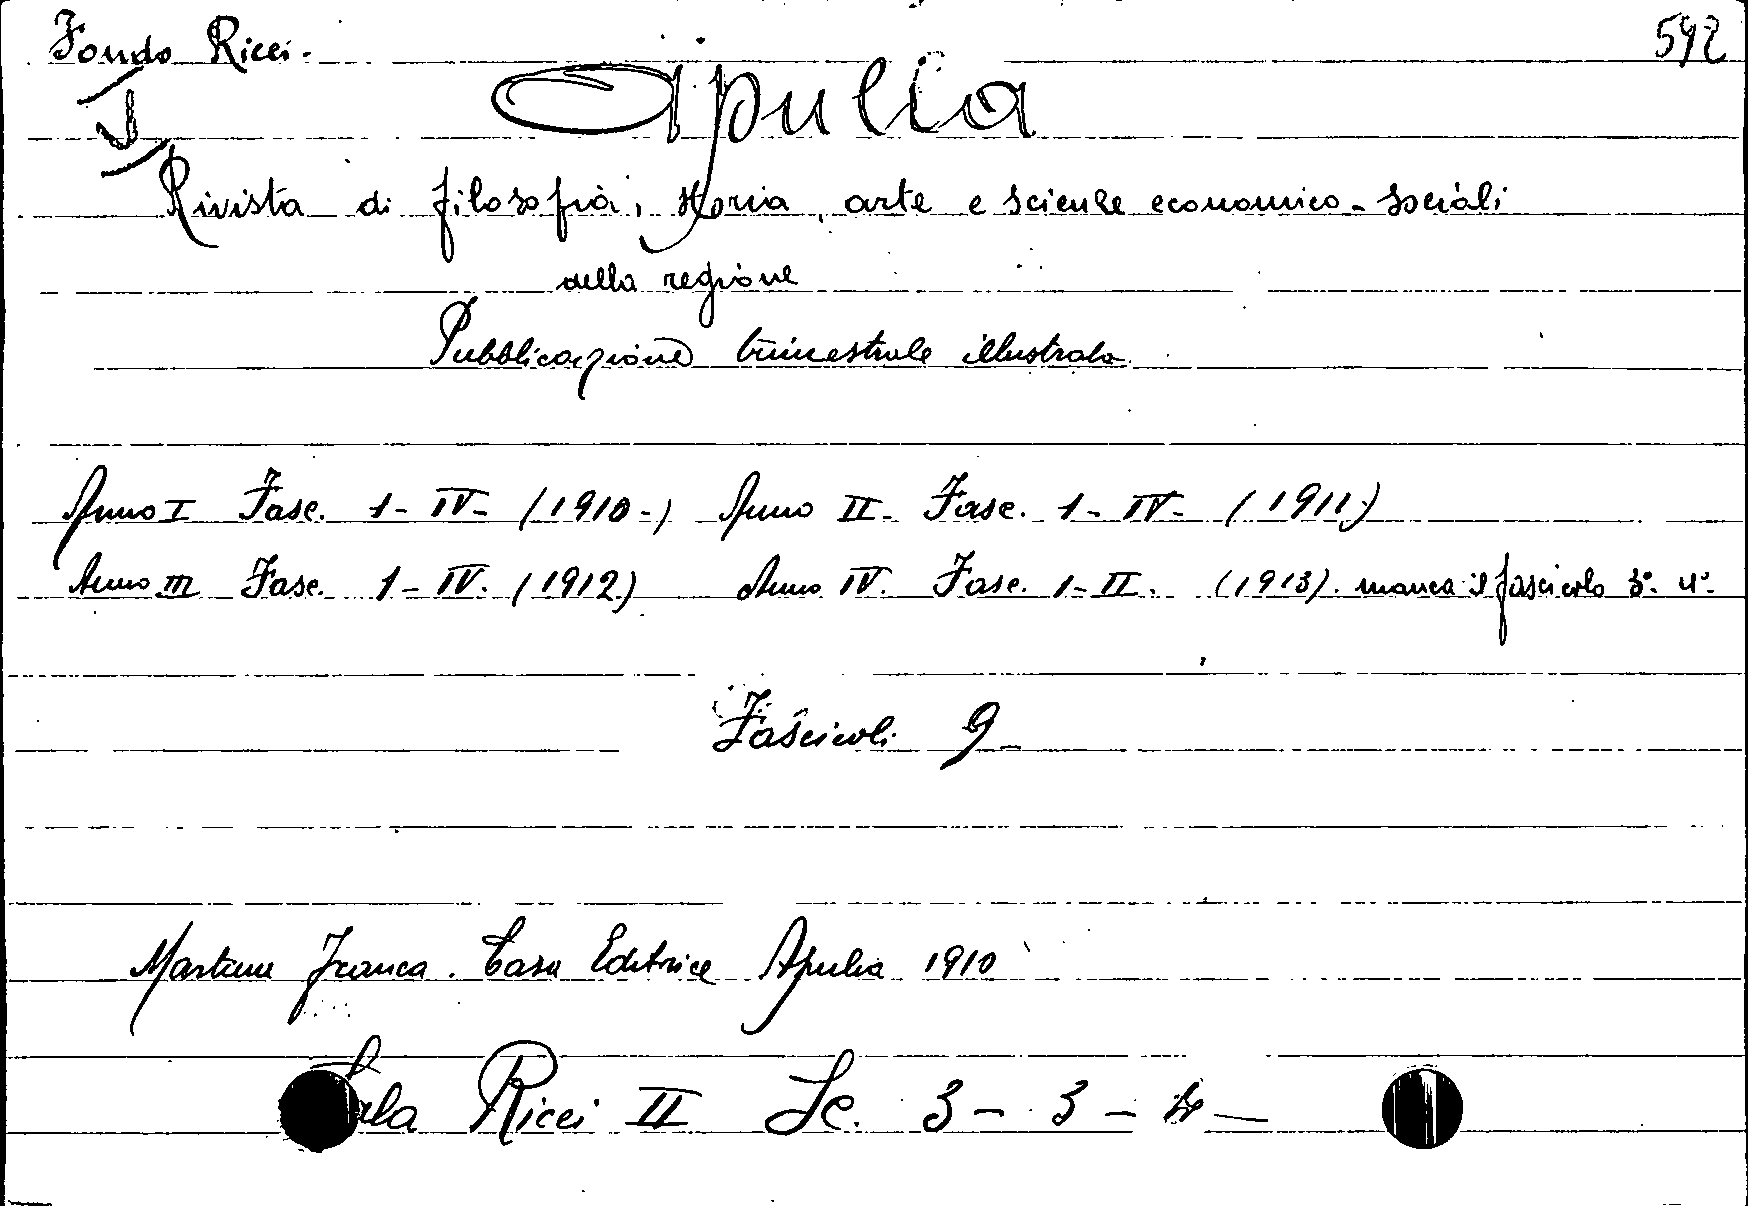 Fondo Ricci. 592
I
Apulia
Rivista di filosofia, storia, arte e scienze economico-sociali
della regione
Pubblicazione trimestrale illustrata.
Anno I Fasc. 1- IV- (1910-) Anno II- Fasc. 1- IV- (1911)
Anno III Fasc. 1-IV. (1912) Anno IV. Fasc. 1-II. (1913). manca il fascicolo 3°. 4°.
Fascicoli 9-
Martina Franca. Casa Editrice Apulia 1910
Sala Ricci II Sc. 3 - 3 - 4 -